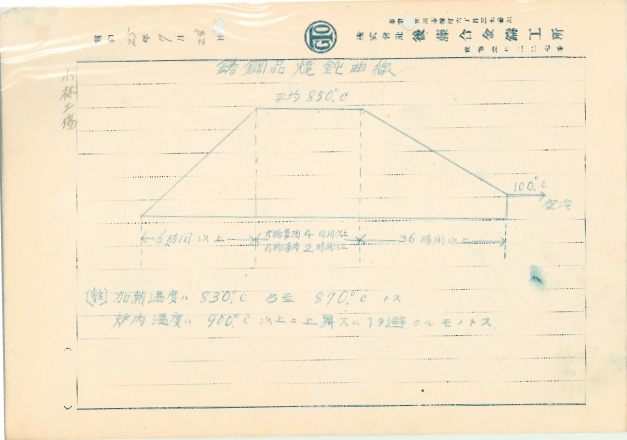 昭和25年7月28日
株式會社 後藤合金鑄工所
GTO
小林工場
鋳鋼品焼鈍曲線
平均 850°C
100°C
空冷
6時間以上
大物厚肉 4時間以上
小物薄肉 2時間以上
36時間以上
(註) 加熱温度ハ 830°C 乃至 870°C トス
炉内温度ハ 900°C 以上ニ上昇スルヿヲ避クルモノトス